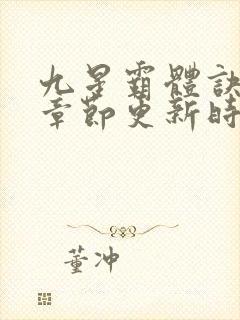 九星霸體訣
章節更新時
董冲